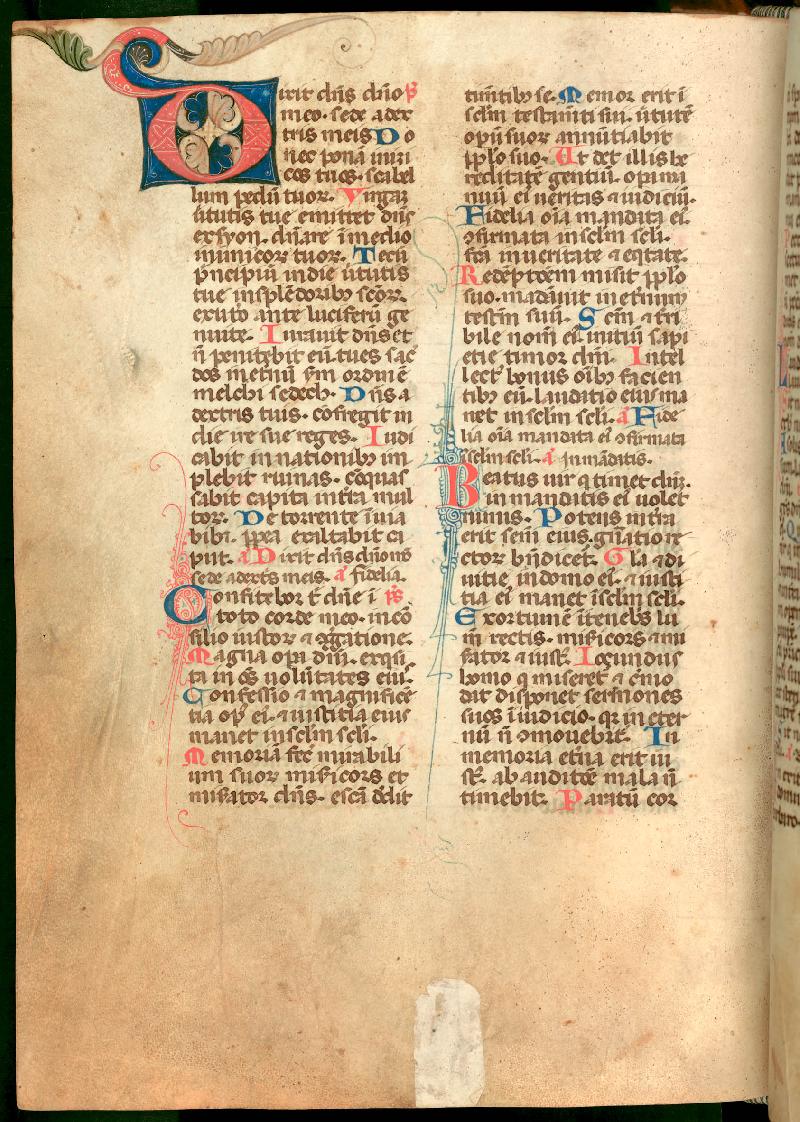 Dixit dn̄s dn̄o p̄s
meo. sede a dex
tris meis Do
nec ponā inimi
cos tuos. scabel
lum pedū tuor. Virgaꝫ
ūtutis tue emittet dn̄s
ex syon. dn̄are ī medio
inimicor tuor. Tecū
p̄ncipiū in die ūtutis
tue in splēdoribꝫ scōꝝ.
ex uto ante luciferū ge
nui te. Iurauit dn̄s et
n̄ penitebit eū. tu es sac̄
dos in et̄nū s̄m ordinē
melchisedech. Dn̄s a
dextris tuis. cōfregit in
die ire sue reges. Iudi
cabit in nationibꝫ im
plebit ruinas. cōquas
sabit capita in t̄ra mul
tor. De torrente ī uia
bibꝫ. ꝓpt̄ea exaltabit ca
put. a Dixit dn̄s dn̄o mō
sede a dext̄s meis. a Fidelia.
Confitebor t̄ dn̄e ī p̄s
toto corde meo. in cō
silio iustoꝝ ⁊ ꝯgͣgatione.
Magna opa dn̄i. exqsi
ta in oēs uolūtates eiꝰ.
Confessio ⁊ magnificē
tia opꝰ eiꝰ. ⁊ iustitia eius
manet in sc̄lm sc̄li.
Memoriā fec̄ mirabili
um suoꝝ misicors et
misator dn̄s. escā dedit
timētibꝫ se. Memor erit ī
sc̄lm testamt̄i sui. ūtutē
opū suoꝝ annūtiabit
pplo suo. Ut det illis he
reditatē gentiū. opa ma
nuū eiꝰ ueritas ⁊ iudiciū.
Fidelia oīa mandata eiꝰ.
ꝯfirmata in sc̄lm sc̄li.
fc̄a in ueritate ⁊ eq̄tate.
Redēptōem misit pplo
suo. mādauit in et̄num
testm̄ suū. Scm̄ ⁊ t̄ri
bile nom̄ eiꝰ initiū sapi
ētie timor dn̄i. Intel
lect bonus oībꝫ facien
tibꝫ eū. laudatio eiꝰ ma
net in sc̄lm sc̄li. a Fide
lia oīa mandata eiꝰ ꝯfirmata
ī sc̄lm sc̄li. a In mādatis.
Beatus uir q timet dn̄ꝫ.
in mandatis eiꝰ uolet
nimis. Potens in t̄ra
erit sem̄ eius. gn̄atio re
ctoꝝ bn̄dicet. Gl̄a ⁊ di
uitie in domo eiꝰ. ⁊ iusti
tia eiꝰ manet ī sc̄lm sc̄li.
Exortum ē ī tenebs lu
m̄ rectis. misicors ⁊ mi
sator ⁊ iustꝰ. Iocundus
homo q miseret ⁊ cōmo
dat disponet sermones
suos ī iudicio. qꝛ in eter
nū n̄ ꝯmouebit. In
memoria et̄na erit iu
stꝰ. ab auditōe mala n̄
timebit. Paratū cor